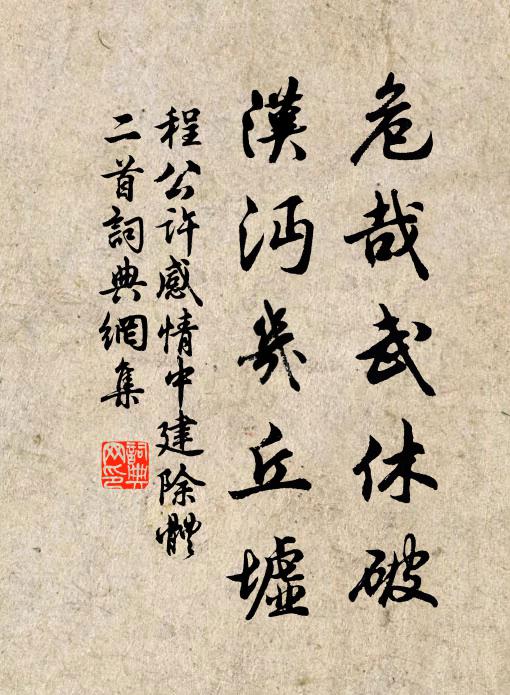 危哉武休破
漢沔幾丘墟
程公許感情中建除體
二首詞典網集
詞典網印